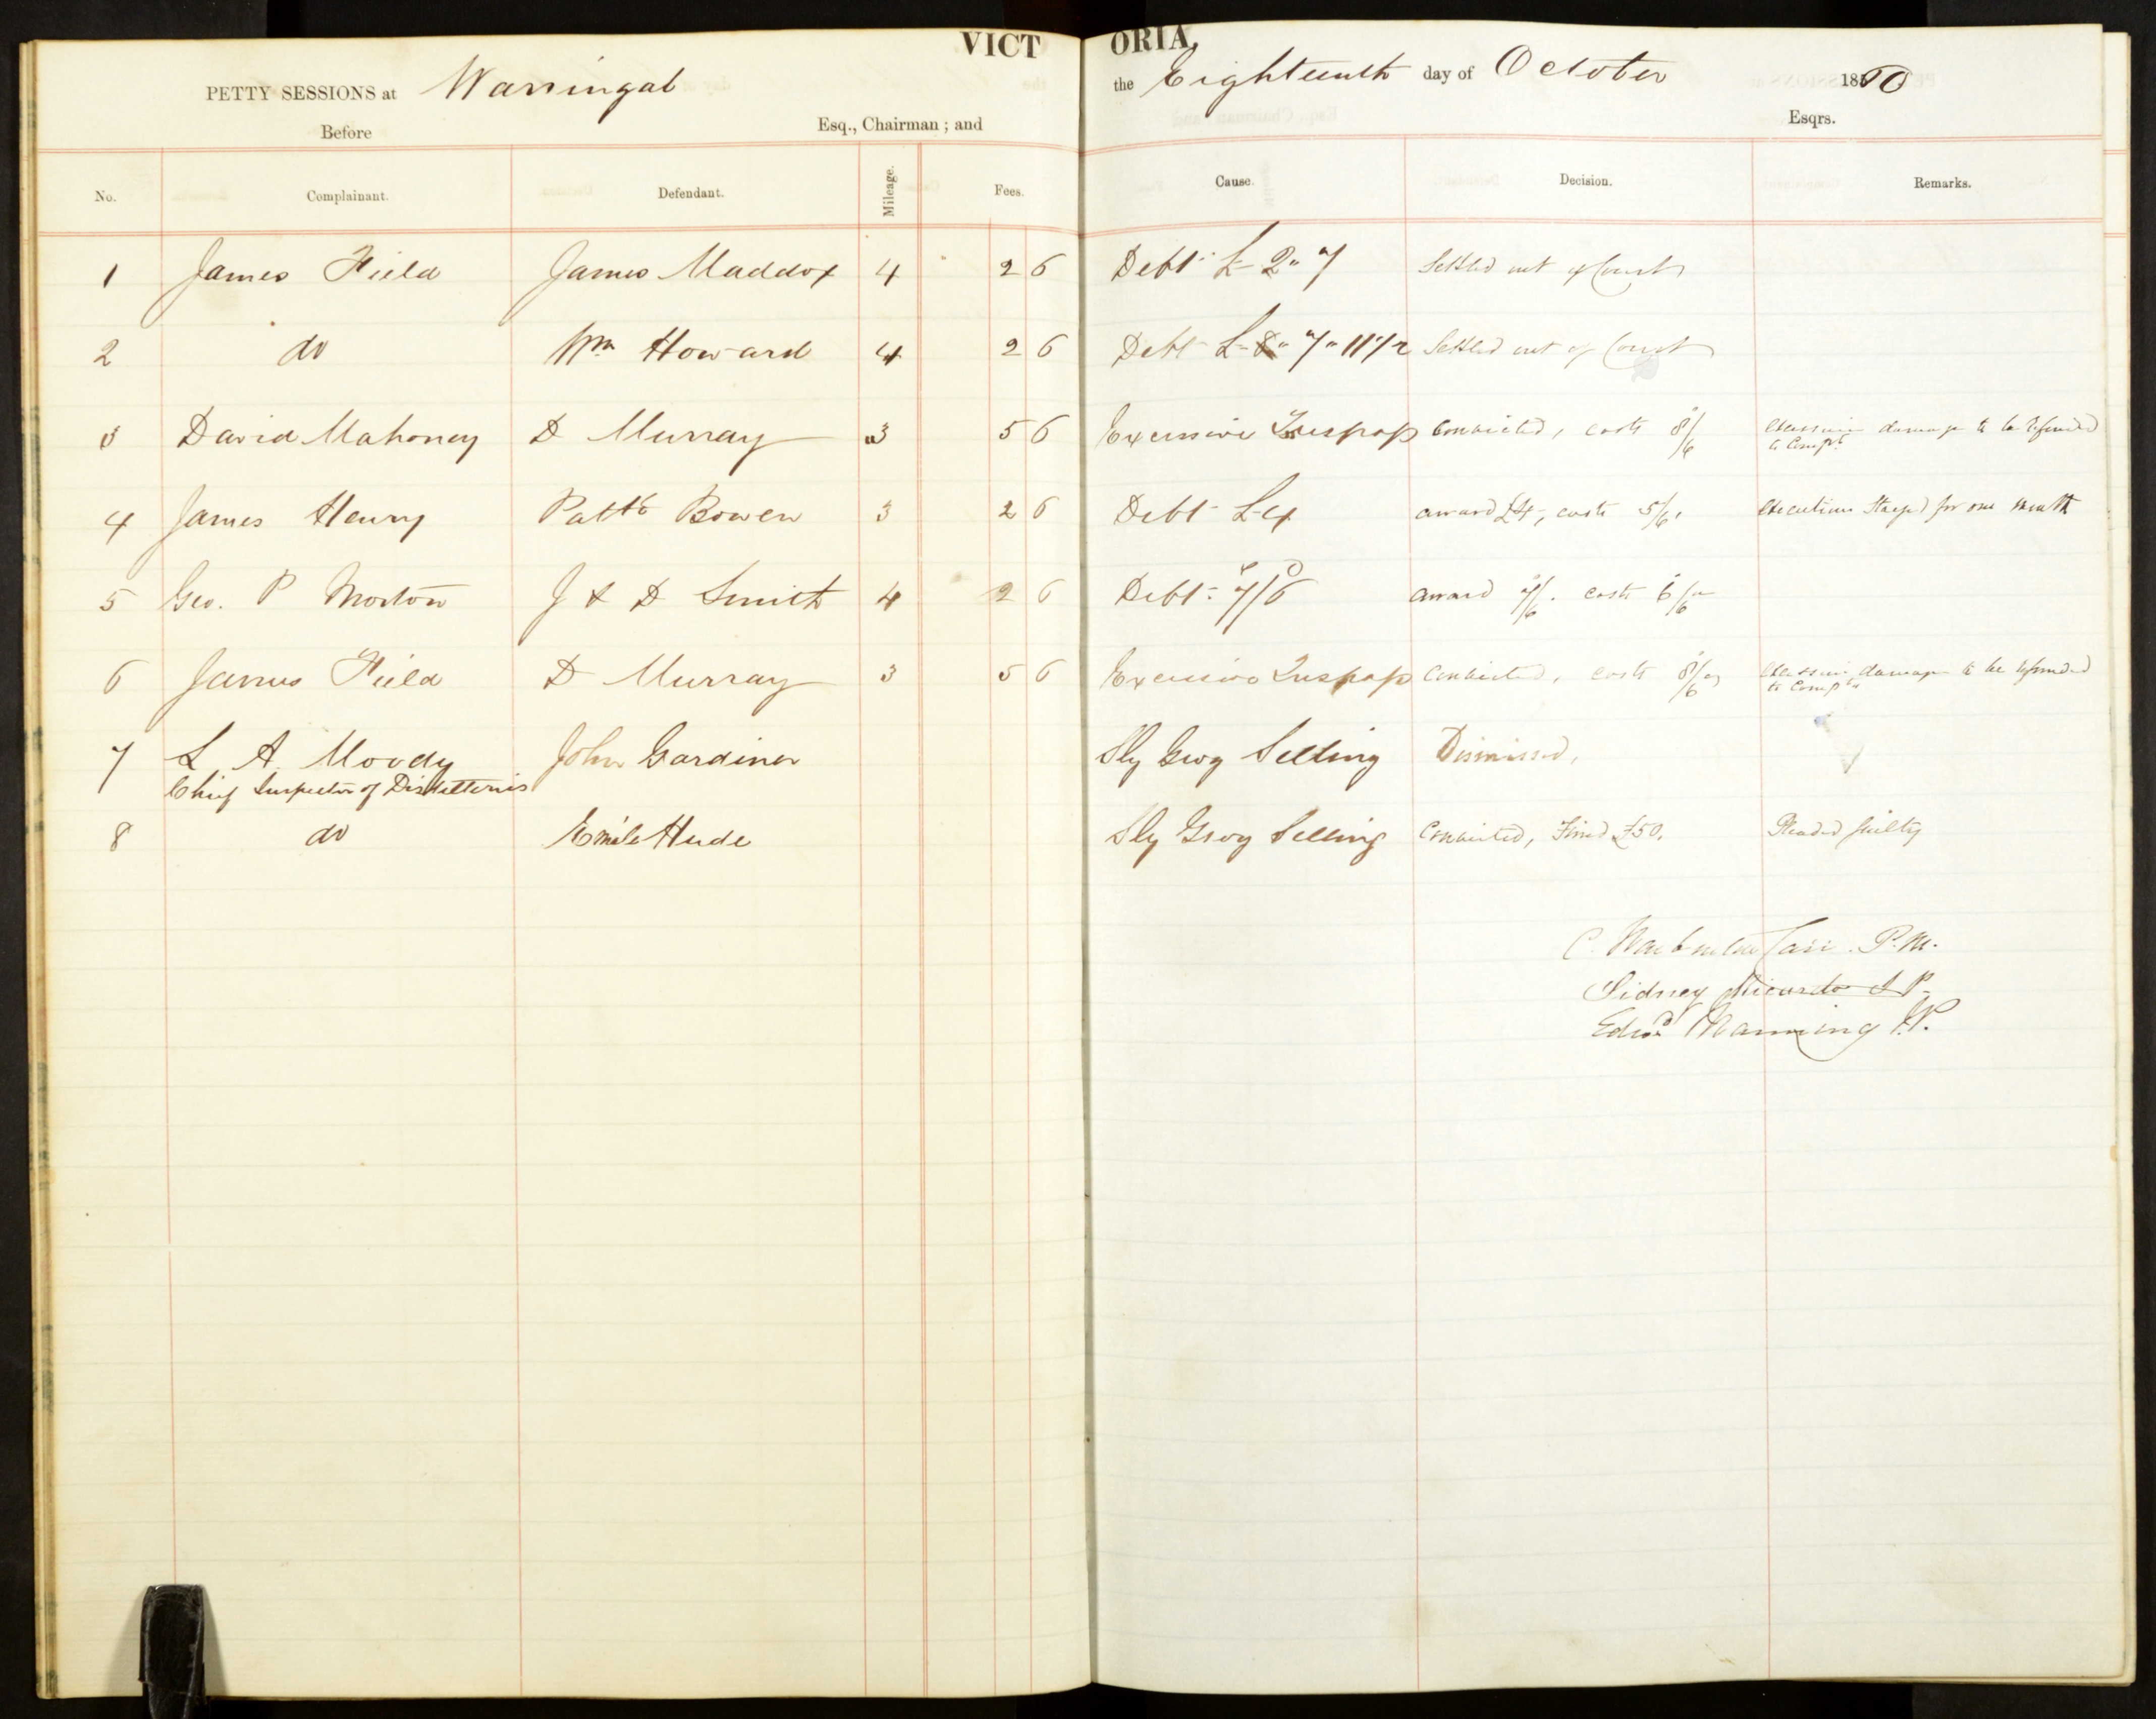 VICTORIA,
PETTY SESSIONS at Warringal the Eighteenth day of October 1860
Before Esq., Chairman ; and Esqrs.
No. Complainant. Defendant. Mileage. Fees. Cause. Decision. Remarks.
1 James Field James Maddox 4 2 6 Debt £2" 7 Settled out of Court
2 do Wm Howard 4 2 6 Debt £ " 7 " 11 1/2 Settled out of Court
3 David Mahoney D Murray 3 5 6 Excessive Trespass Convicted, costs 8/6 Excessive damage to be refunded
to Compt
4 James Henry Patk Bowen 3 2 6 Debt £4 award £4, costs 5/6. Execution Stayed for one month
5 Geo. P Morton J & D Smith 4 2 6 Debt 7/6 award 7/6. costs 6/6
6 James Field D Murray 3 5 6 Excessive Trespass Convicted, costs 8/6 Excessive damage to be refunded
to Compt
7 L A. Moody John Gardiner Sly Grog Selling Dismissed,
Chief Inspector of Distilleries
8 do Emile Hude Sly Grog Selling Convicted, Fined £50. Pleaded guilty
C. Warburton Carr. P.M.
Sidney Ricardo J P.
Edwd Manning J.P.